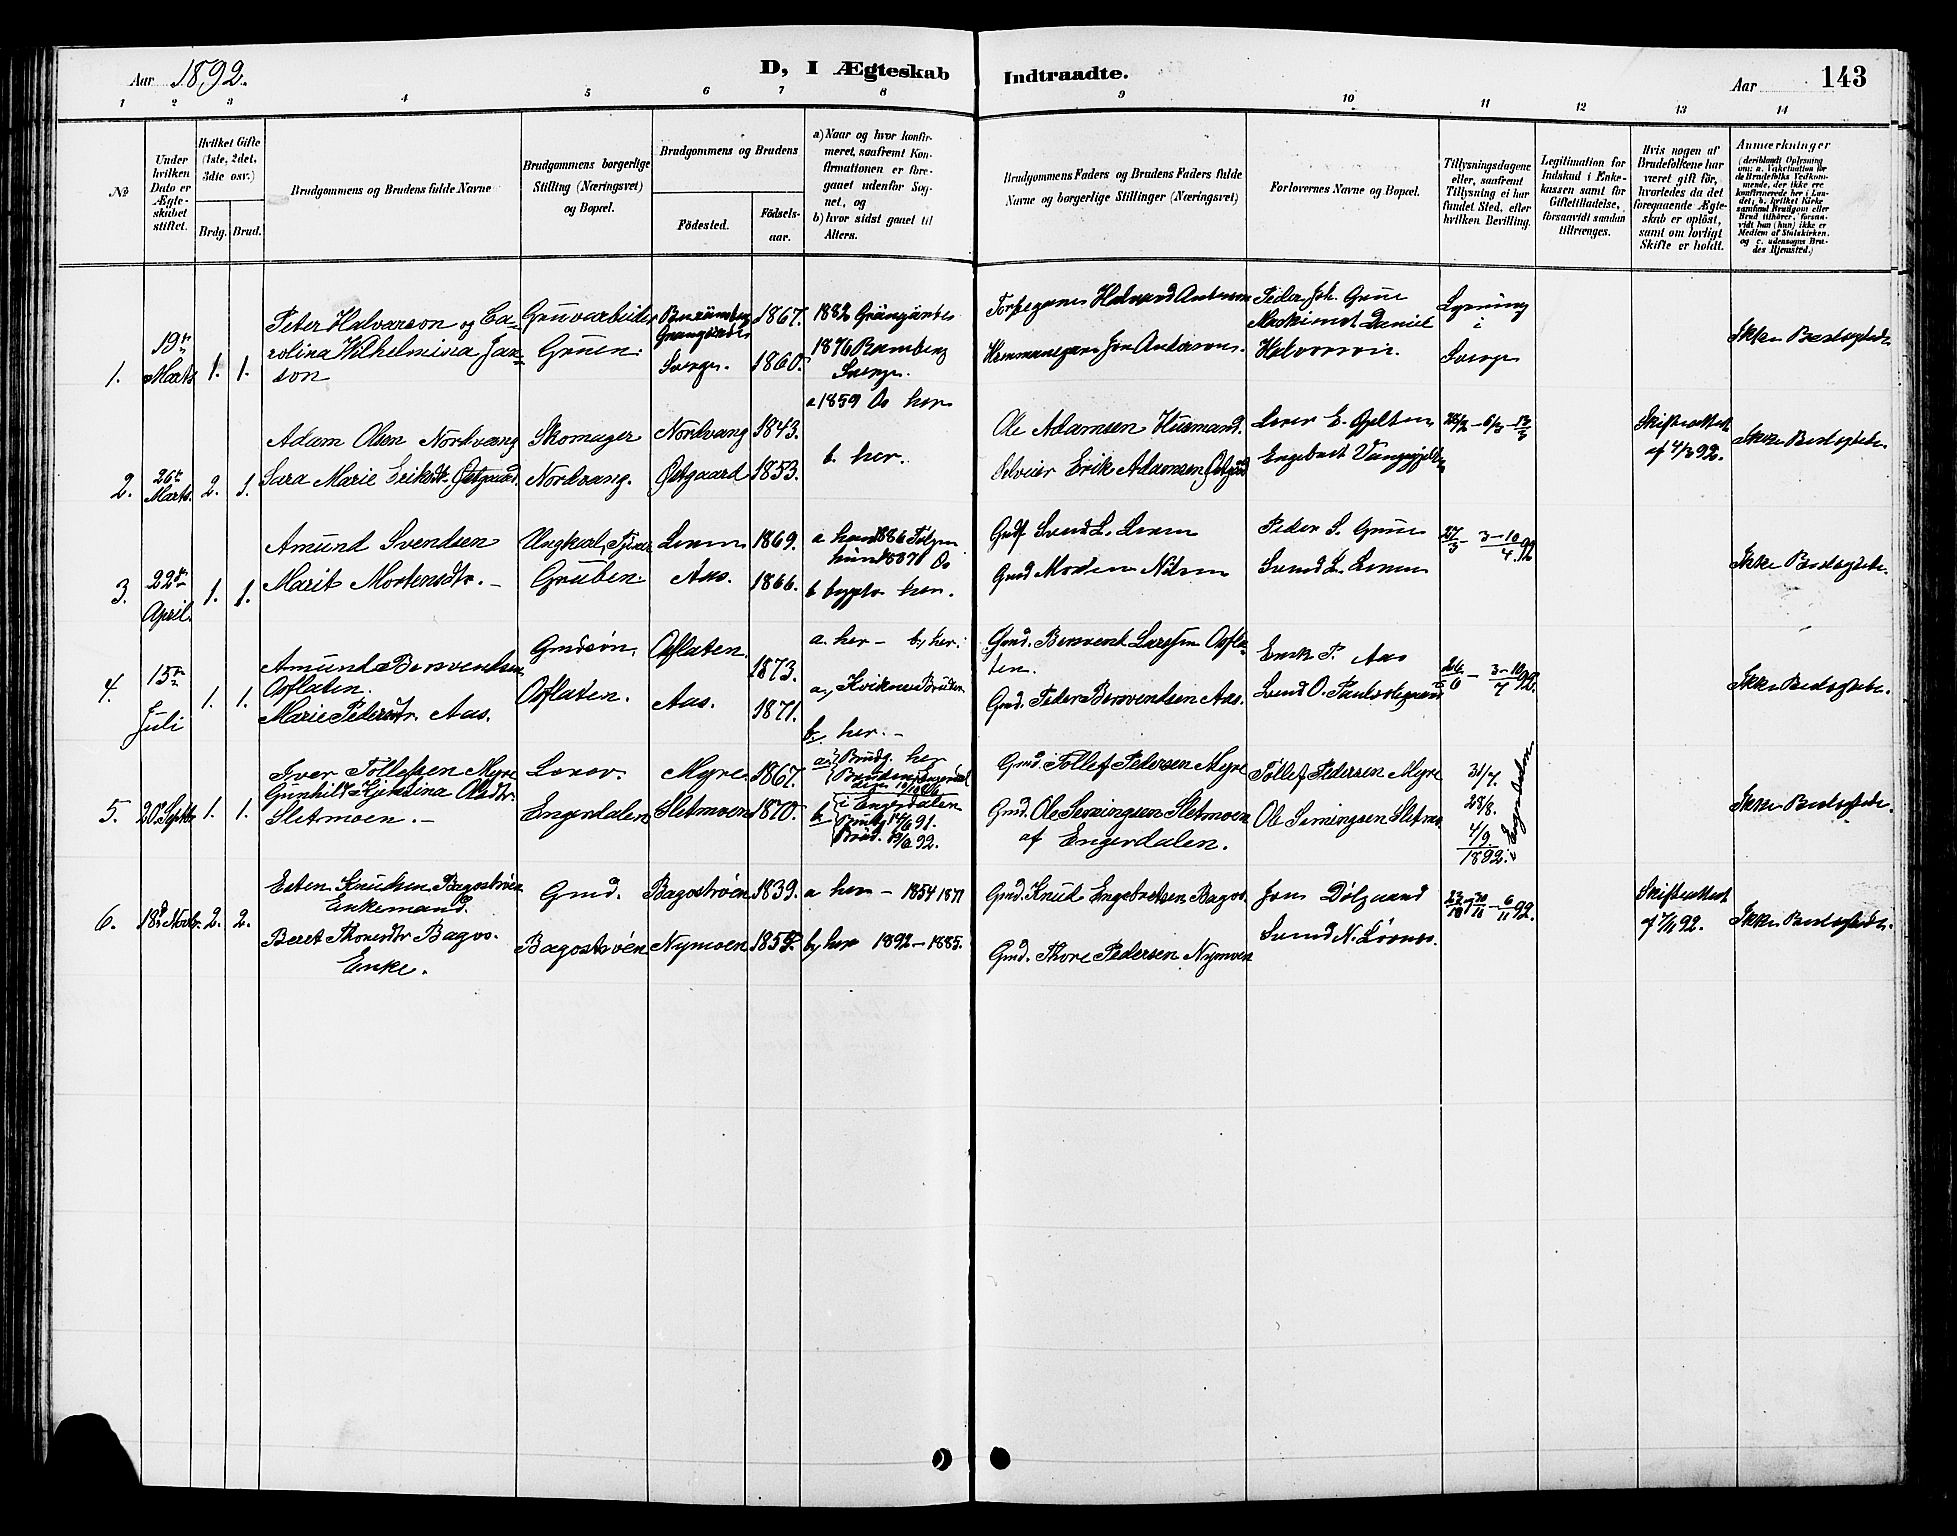 Aar 1892.
D, I Ægteskab Indtraadte.
Aar 143
1 2 3 4 5 6 7 8 9 10 11 12 13 14
No
Under hvilken Dato er Ægteskabet stiftet.
Hvilket Gifte (1ste, 2det, 3die osv.)
Brdg. Brud.
Brudgommens og Brudens fulde Navne
Brudgommens borgerlige Stilling (Næringsvei) og Bopæl.
Brudgommens og Brudens
Fødested.
Fødselsaar.
a) Naar og hvor konfirmeret, saafremt Konfirmationen er foregaaet udenfor Sognet, og
b) hvor sidst gaaet til Alters.
Brudgommens Faders og Brudens Faders fulde Navne og borgerlige Stillinger (Næringsvei)
Forlovernes Navne og Bopæl.
Tillysningsdagene eller, saafremt Tillysning ei har fundet Sted, efter hvilken Bevilling.
Legitimation for Indskud i Enkekassen samt for Giftetilladelse, forsaavidt saadan tiltrænges.
Hvis nogen af Brudefolkene har været gift før, hvorledes da det foregaaende Ægteskab er opløst, samt om lovligt Skifte er holdt.
Anmærkninger
(deriblandt Oplysning om: a. Vaksination for de Brudefolks Vedkommende, der ikke ere konfirmerede her i Landet; b. hvilket Kirkesamfund Brudgom eller Brud tilhører, forsaavidt han (hun) ikke er Medlem af Statskirken, og c. udensogns Brudes Hjemsted.)
1. 19de Marts 1. 1.
Peter Halvarson og Carolina Wilhelmina Janson
Gruvarbeider Gruen.
Sverge.
1867. 1860.
1882 Grängärdes
1876 Ramberg Sverge.
Halvard Anderson
Hemmansegaren Jan Anderson.
Peder Joh. Grue
Maskinist Daniel Halvorson.
Lysning i Sverge
Ikke Beslægtede
2. 26de Marts. 2. 1.
Adam Olsen Nordvang
Sara Marie Eriksdtr. Østgaard.
Skomager Nordvang.
Nordvang Østgaard
1843. 1853.
a 1859 Os her
b. her.
Ole Adamsen Husmand.
Erik Adamsen Østgård
Iver E. Gjelten
Engebret Vangsgjelten
28/2 – 6/3 – 13/3
Skifteattest af 4/3 92.
Ikke Beslægtede.
3. 22de April. 1. 1.
Amund Svendsen
Marit Mortensdtr. –
Ungkarl, Tjener Gruben.
Aas.
1869. 1866.
a han 1886 Tolgen
hun 1871 Os
b begge her.
Svend L.
Gmd Morten Nilsen
Peder S. Grue
Svend L.
27/3 – 3 – 10/4 92
Ikke Beslægtede.
4. 15de Juli 1. 1.
Amund Bersvendsen Osflaten.
Marie Pedersdtr. Aas.
Gmdsøn, Osflaten.
Osflaten. Aas.
1873. 1871.
a. her – b, her.
a, Kvikne Bruden
b, her. –
Gmd. Bersvend Larssen Osflaten.
Gmd. Peder Bersvendsen Aas.
Enok P. Aas
Svend O. Paulsdegaard
26/6 – 3 – 10/7 92.
Ikke Beslægtede.
5. 20de Septbr. 1. 1.
Iver Tollefsen Myre
Gunhild Kjerstina Olsdtr. Sletmoen. –
Engerdalen
Myre. Sletmoen
1867. 1870.
a, Brudg. her
Bruden Engerdalen
b i Engerdalen
Brudg 14/6 91.
Brud. 19/6 92.
Gmd. Tollef Pedersen Myre
Gmd. Ole Semingsen Sletmoen af Engerdalen.
Tollef Pedersen Myre
Ole Semingsen Sletmo
31/7. 28/8. 4/9 1892. i Engerdalen
Ikke Beslægtede.
6. 18de Novbr. 2. 2.
Esten Knudsen Bagostrøen Enkemand.
Beret Thoresdtr Bagos. Enke.
Gmd. Bagostrøen
Bagostrøen Nymoen
1839.
a her – 1854 1871
b, her 1892 – 1885.
Gmd. Knud Engebretsen Bagos.
Gmd. Thore Pedersen Nymoen
Jens Dølgaard
Svend N.
23/10 – 30/10 – 6/11 92.
Skifteattest af 7/11 92.
Ikke Beslægtede.